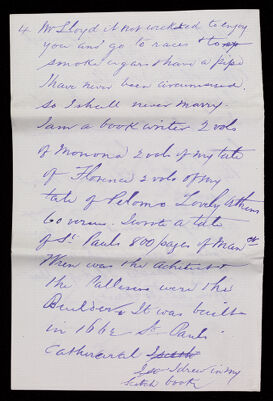 4. Mr Lloyd it not wicked to enjoy
you and go to races & to
smoke cigars & have a pipe
I have never been circumcised.
So I shall never marry.
I am a book writer 2 vols
of Monona 2 vols of my tale
of Florence 2 vols of my
tale of Lovely
60 I wrote a tale
of St Pauls 800/pages of Man
Wren was the
the were the
Builders It was built
in 1662 St Pauls
Cathederal
I drew in my
book